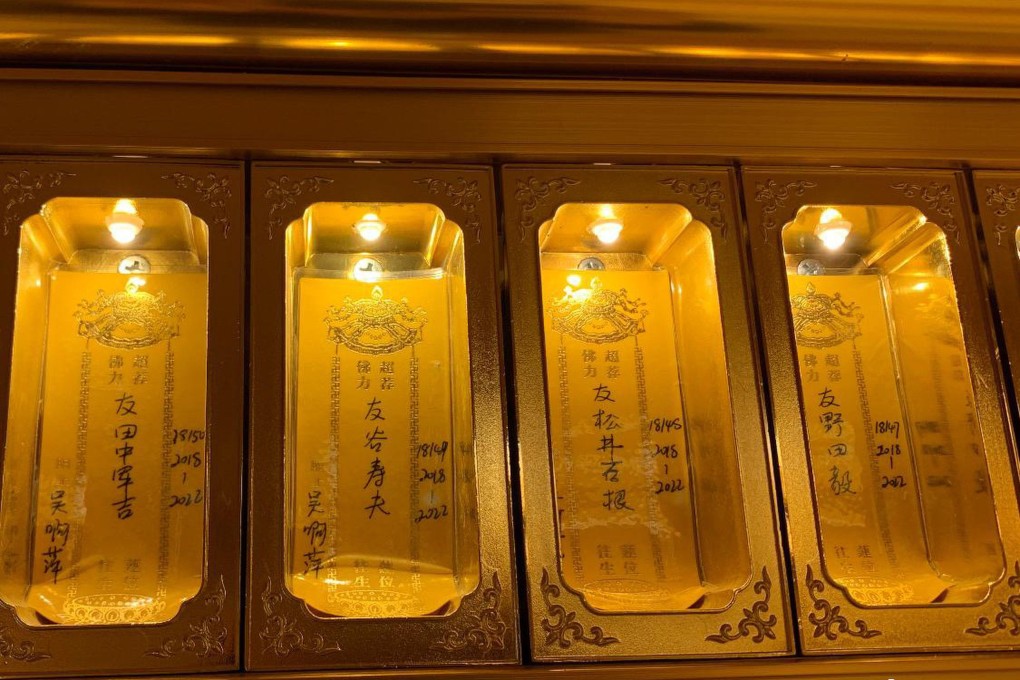 佛力
超荐
友田中军吉
18150
2018
|
2022
吴啊萍
往生
莲位
佛力
超荐
友谷寿夫
18149
2018
|
2022
吴啊萍
往生
莲位
佛力
超荐
友松井石根
18148
2018
|
2022
往生
莲位
佛力
超荐
友野田毅
18147
2018
|
2022
往生
莲位